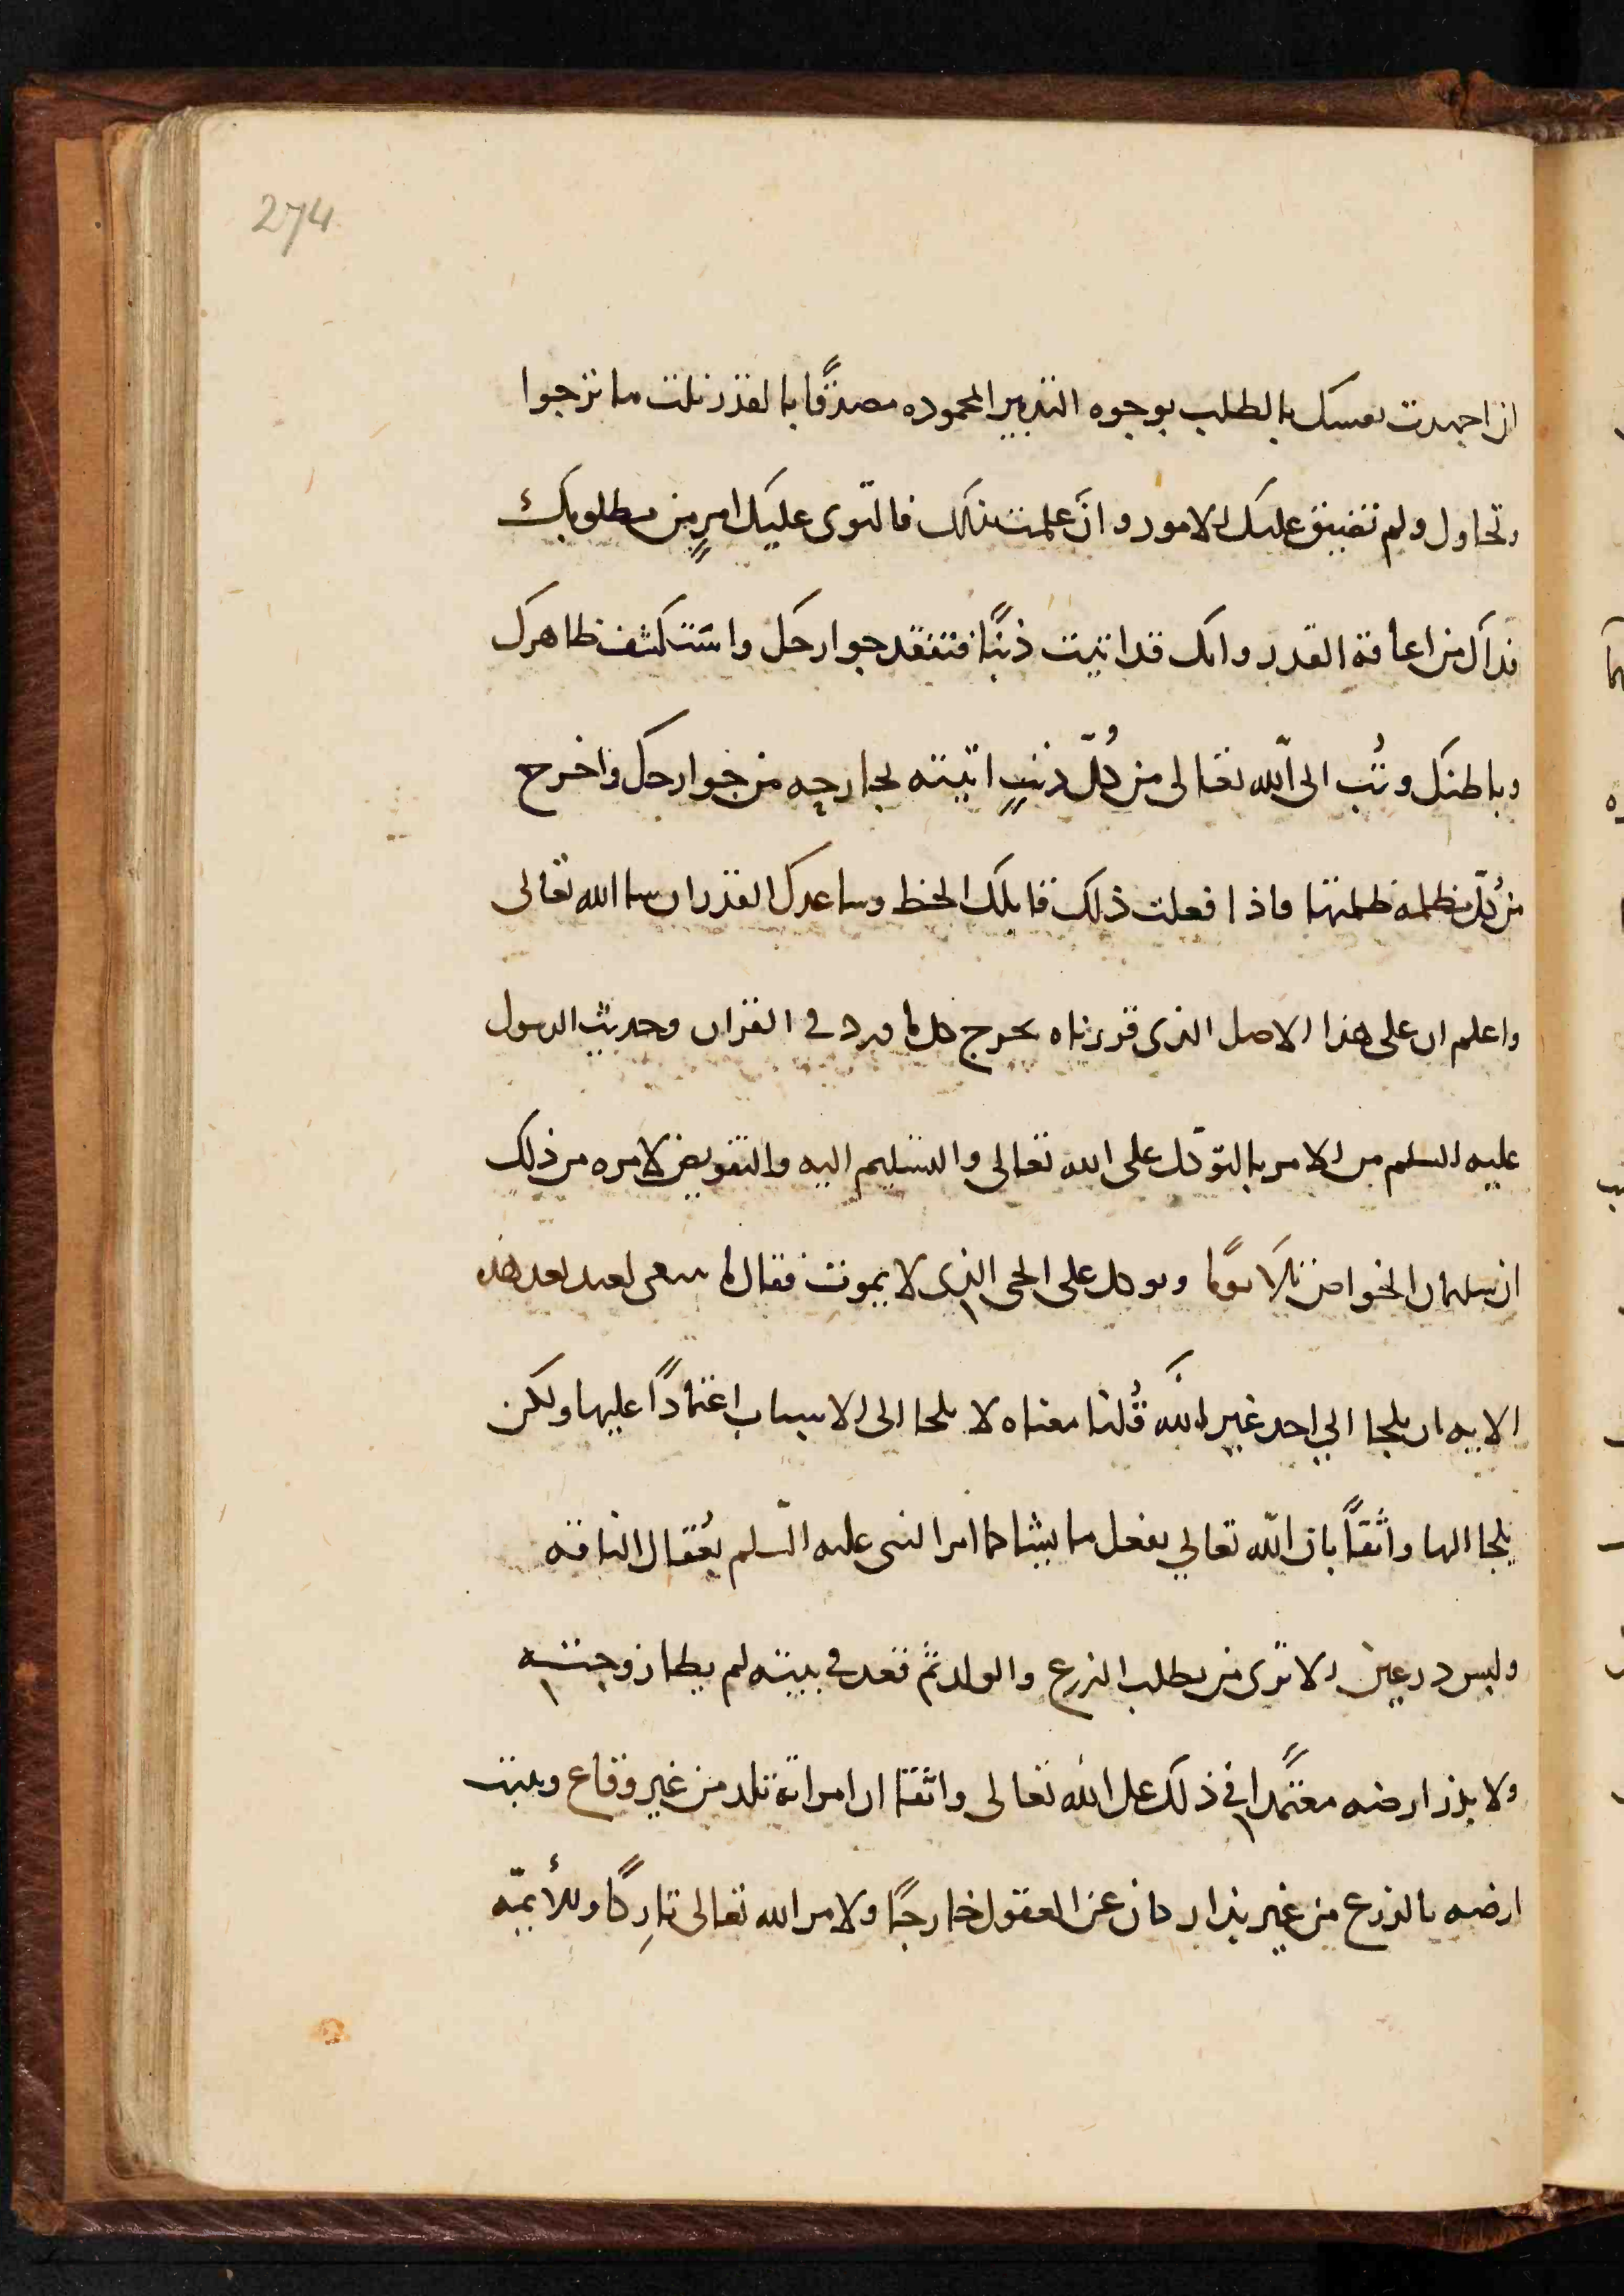 274
اذا جهدت نفسك بالطلب بوجوه التدبير المحموده مصدقًا بالقدر نلت ما ترجوا
وتحاول ولم تضيق عليك الامور وان علمت ذلك فالتوى عليك امرٍ من مطلوبك
فذلك من اعاقة القدر وانك قد اتيت ذنبًا فتفقد جوارحك واستكشف ظاهرك
وباطنك وتُب الى الله تعالى من كُلّ ذنبٍ اتيته بجارحه من جوارحك واخرج
من كُلّ مظلمه ظلمتها فاذا فعلت ذلك قابلك الحظ وساعدك القدر ان سا الله تعالى
واعلم ان على هذا الاصل الذى قررناه يخرج كل ما ورد في القران وحديث الرسول
عليه السلم من الامر بالتوكّل على الله تعالى والتسليم اليه والتفويض لامره من ذلك
ان سليمان الخواص تلا يومًا وتوكل على الحى الذى لا يموت فقال ما ينبغى لعبد بعد هذه
الايه ان يلجا الي احد غير الله قُلنا معناه لا يلجا الى الاسباب اعتمادًا عليها ولكن
يلجا اليها واثقًا بان الله تعالي يفعل ما يشا كما امر النبى عليه السّلم بعُقال الناقه
ولبس درعين الا ترى من يطلب الزرع والولد ثم قعد في بيته لم يطا زوجته
ولا بذر ارضه معتمدًا في ذلك على الله تعالى واثقا ان امراته تلد من غير وقاع وتنبت
ارضه بالزرع من غير بذار كان عن العقول خارجًا ولامر الله تعالى تارِكًا وللأيمّه